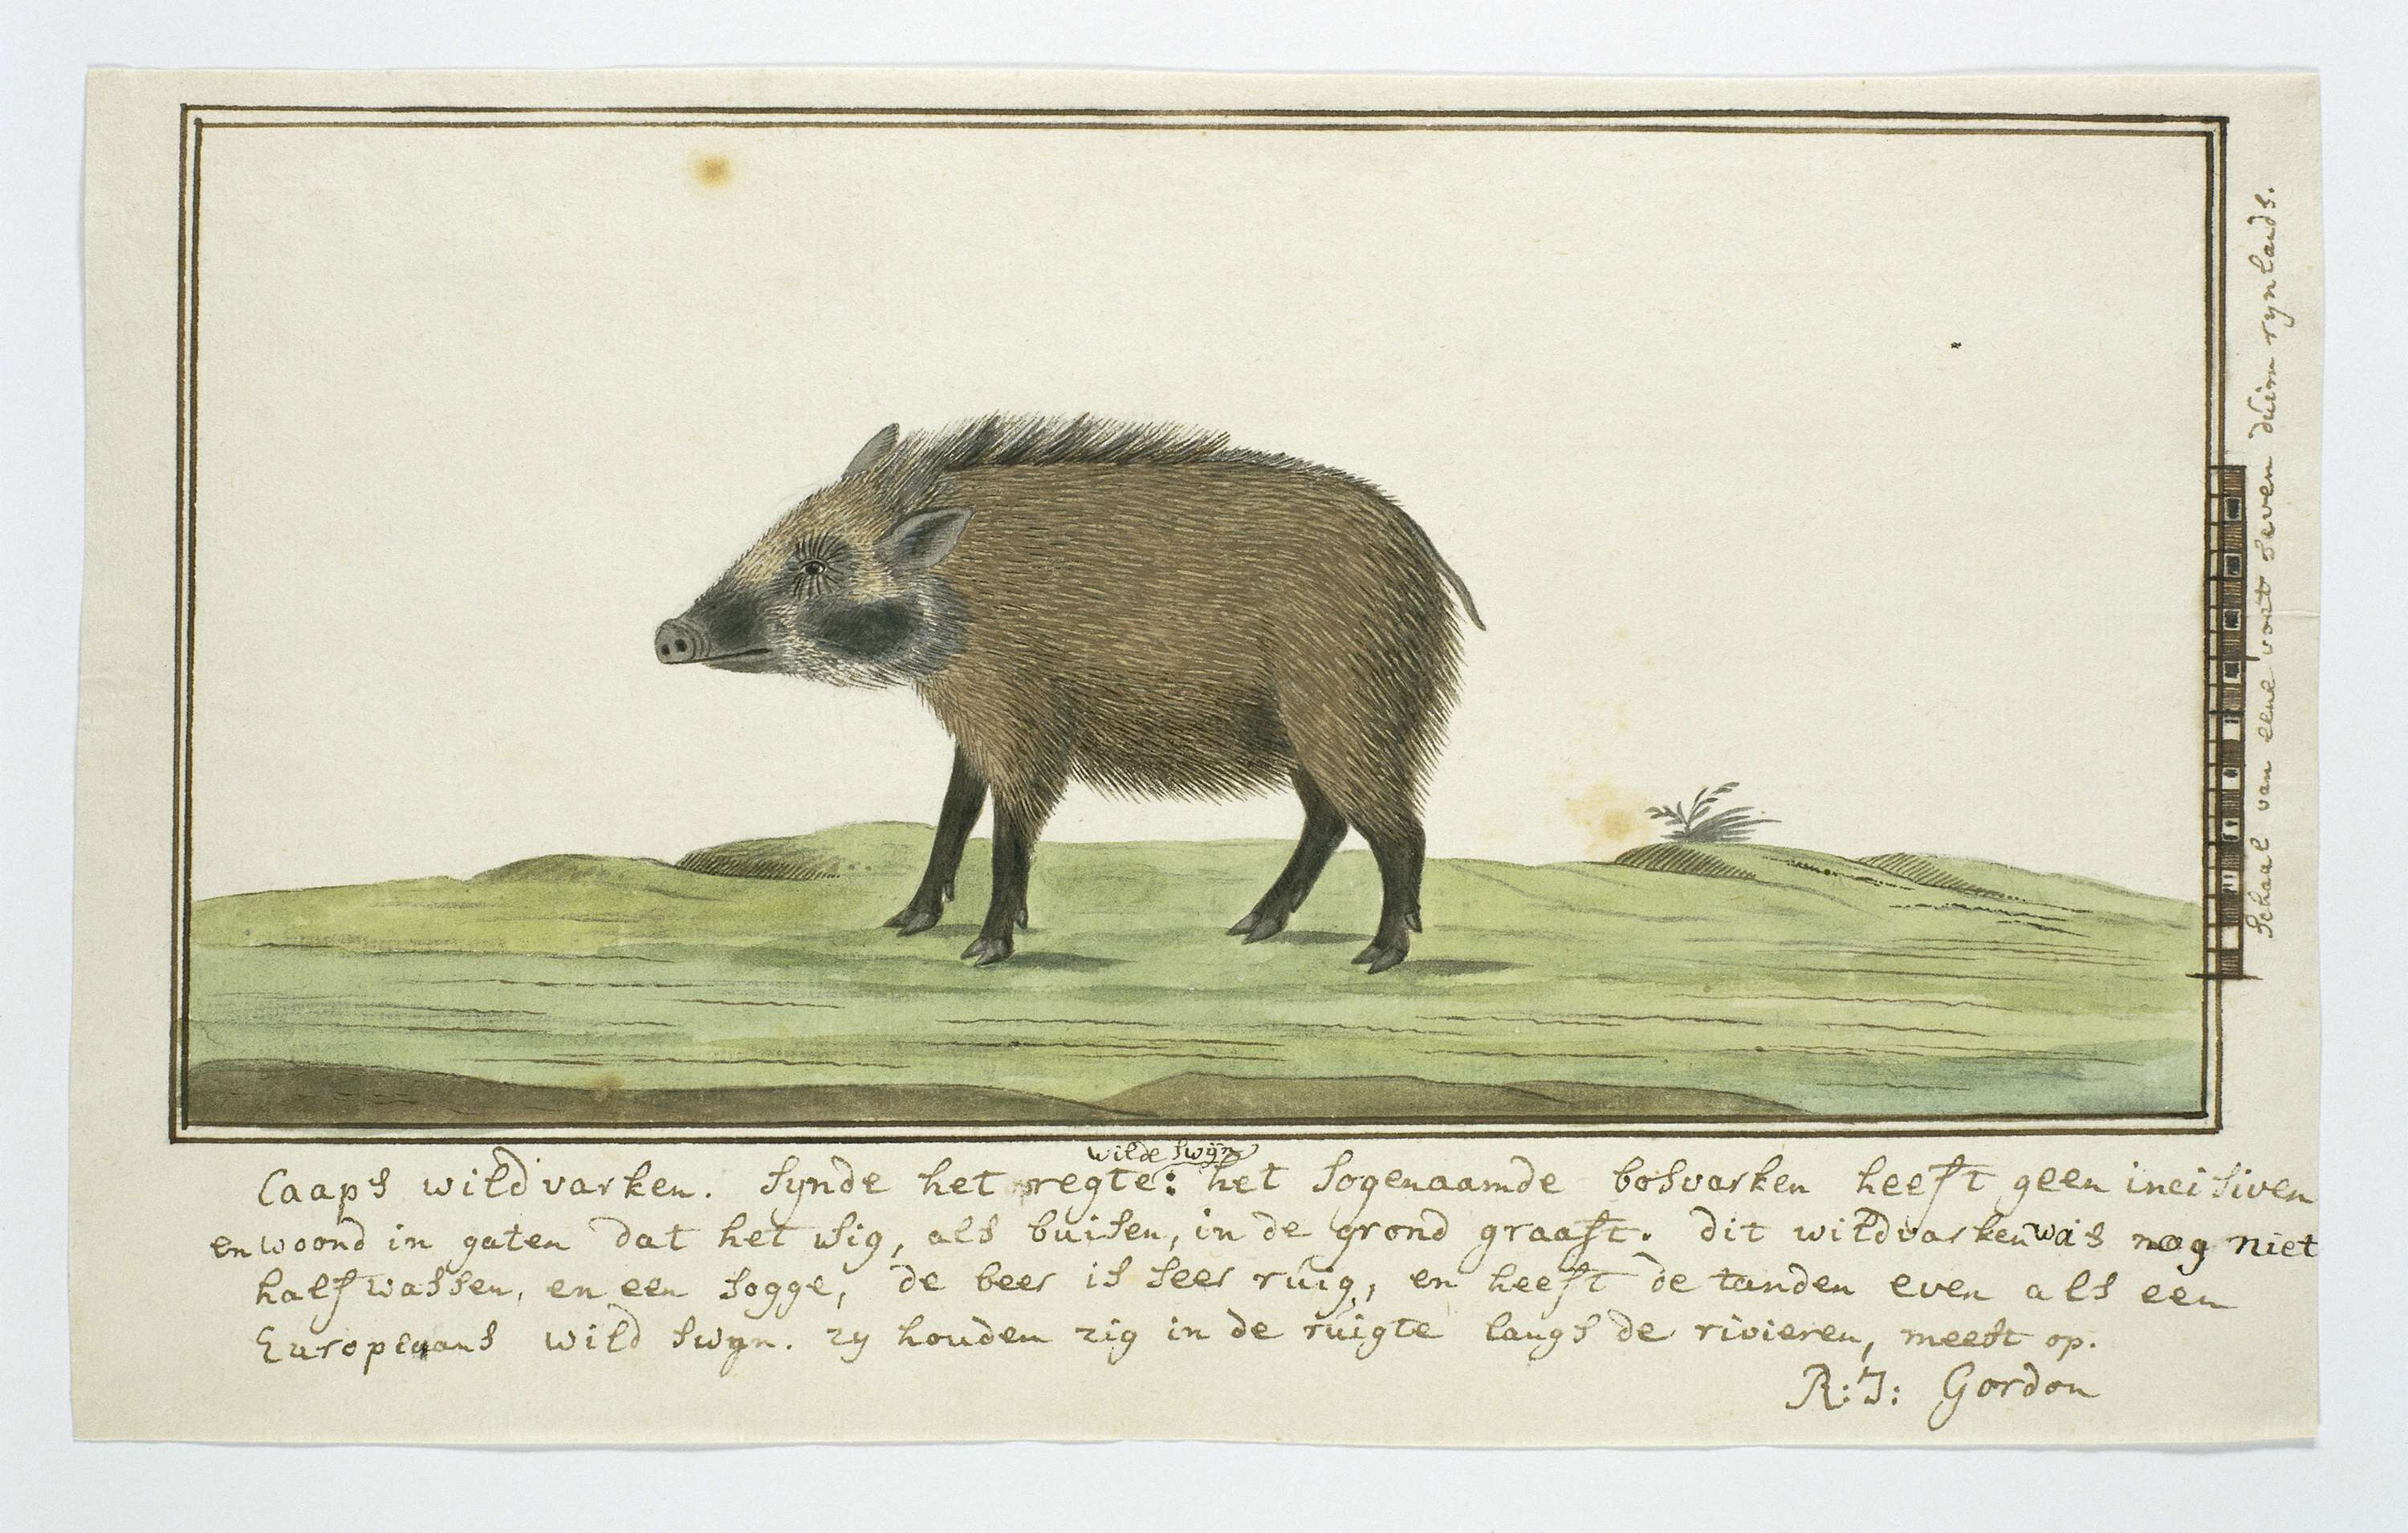 wilde swÿn
Caaps wildvarken. synde het regte: het sogenaamde bosvarken heeft geen incisiven
en woond in gaten dat het sig, als buisen, in de grond graaft. dit wildvarken was nog niet
half wassen, en een sogge, de beer is seer ruig, en heeft de tanden even als een
Europeaans wild swyn. zy houden zig in de ruigte langs de rivieren, meest op.
R:J: Gordon
Schaal van eene voet seven duim rynlands.